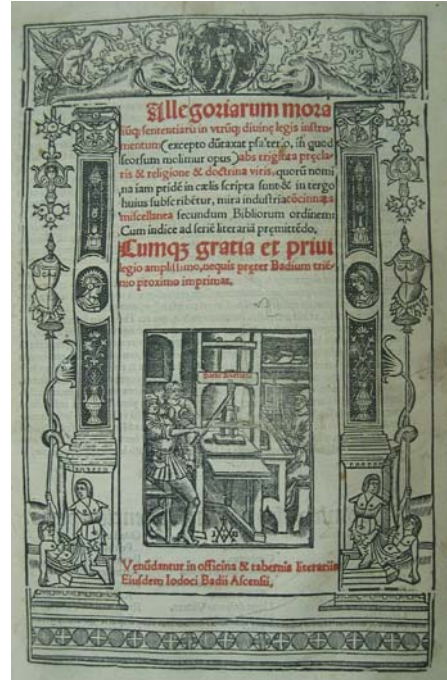 Allegoriarum mora
liũq; sententiarũ in vtrũq; diuinę legis instru-
mentum (excepto dũtaxat psalterio, in quod
seorsum molimur opus) abs triginta pręcla-
ris & religione & doctrina viris, quorũ nomi
na iam pridẽ in cælis scripta sunt & in tergo
huius subscribẽtur, mira industria cõcinnata
miscellanea secundum Bibliorum ordinem:
Cum indice ad seriẽ literariã pręmittẽdo.
Cumq; gratia et priui
legio amplissimo, nequis pręter Badium triẽ-
nio proximo imprimat.
Venũdantur in officina & taberna literariis
Eiusdem Iodoci Badii Ascensii.